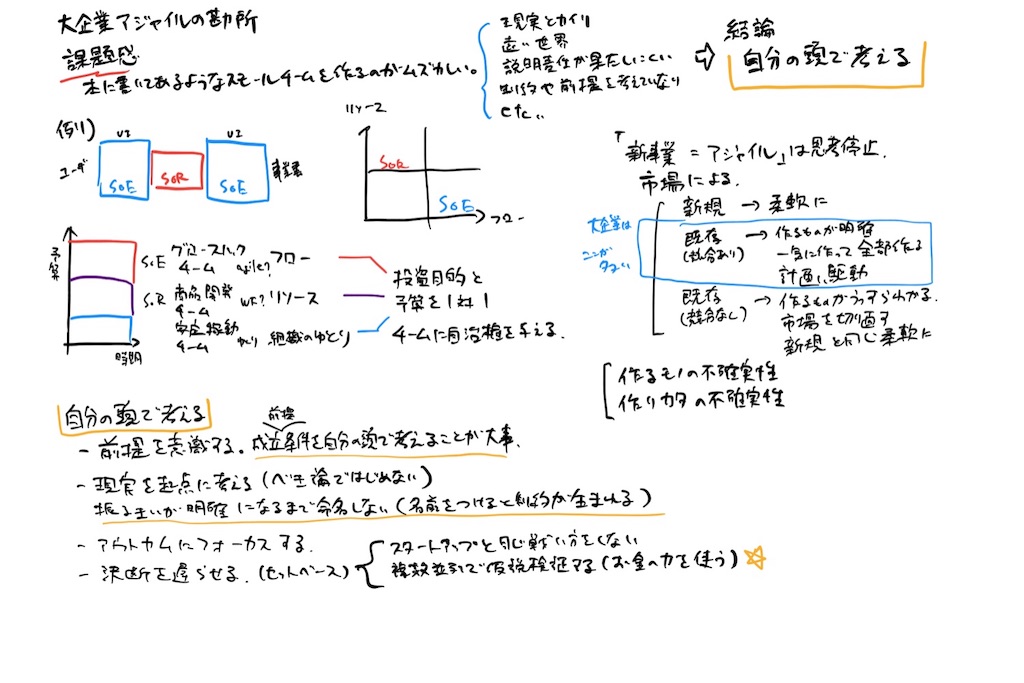 大企業アジャイルの勘所
課題感
本に書いてあるようなスモールチームを作るのがムズかしい。
現実とカイリ
遠い世界
説明責任が果たしにくい
制約や前提を考えていない
etc..
⇨
結論
自分の頭で考える
例)
ユーザ
U1
SoE
SoR
U2
SoE
事業者
リリース
SoR
SoE
フロー
予算
時間
SoE グロースハック チーム agile? フロー
SoR 商品開発 チーム WF? リソース
安定稼動 チーム ゆとり 組織のゆとり
投資目的と
予算を1対1
チームに自治権を与える.
「新事業 = アジャイル」は思考停止.
市場による.
新規 → 柔軟に
大企業は
ここが
多い
既存 (競合あり) → 作るものが明確
一気に作って全部作る
計画駆動
既存 (競合なし) → 作るものがうっすらわかる.
市場を切り直す
新規と同じ柔軟に
作るモノの不確実性
作りカタの不確実性
自分の頭で考える
前提
- 前提を意識する。成立条件を自分の頭で考えることが大事.
- 現実を起点に考える (べき論ではじめない)
振る舞いが明確になるまで命名しない (名前をつけると制約が生まれる)
- アウトカムにフォーカスする.
- 決断を遅らせる. (セットベース)
スタートアップと同じ戦い方をしない
複数並列で仮説検証する (お金の力を使う)